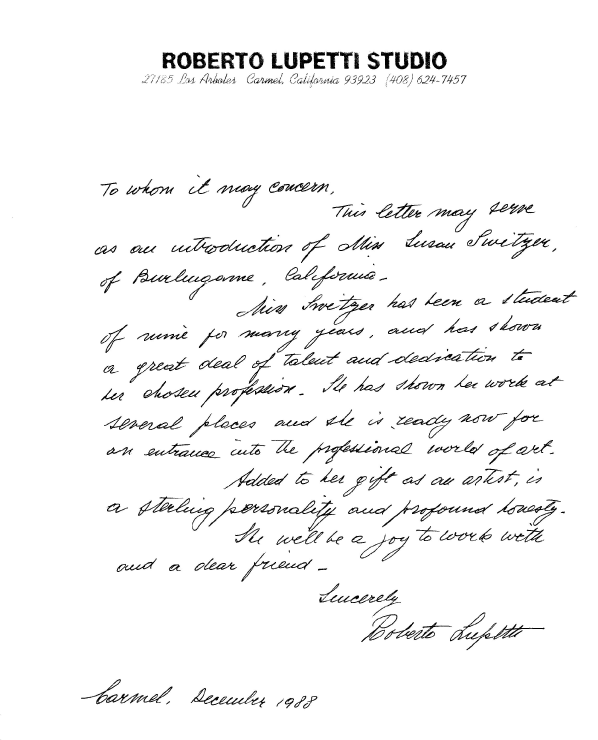 ROBERTO LUPETTI STUDIO
27185 Los Arboles Carmel, California 93923 (408) 624-7457
To whom it may concern,
This letter may serve
as an introduction of Miss Susan Switzer,
of Burlingame, California-
Miss Switzer has been a student
of mine for many years, and has shown
a great deal of talent and dedication to
her chosen profession. She has shown her work at
several places and she is ready now for
an entrance into the professional world of art.
Added to her gift as an artist, is
a sterling personality and profound honesty.
She will be a joy to work with
and a dear friend -
Sincerely
Roberto Lupetti
Carmel, December 1988